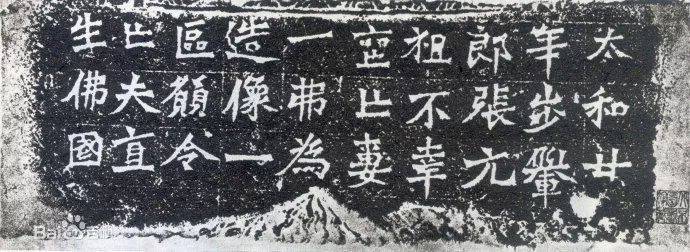 太和廿
年步轝
郎張元
祖不幸
亡妻
一弗為
造像一
區願令
亡夫直
生佛國
Bai 百科